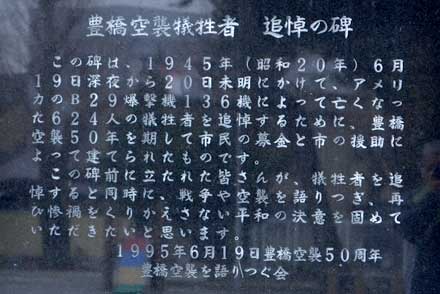 豊橋空襲犠牲者　追悼の碑
この碑は、1945年(昭和20年)6月
19日深夜から20日未明にかけて、アメリ
カのB29爆撃機136機によって亡くなっ
た624人の犠牲者を追悼するために、豊橋
空襲50年を期して市民の募金と市の援助に
よって建てられたものです。
この碑前に立たれた皆さんが、犠牲者を追
悼すると同時に、戦争や空襲を語りつぎ、再
び惨禍をくりかえさない平和の決意を固めて
いただきたいと思います。
1995年6月19日豊橋空襲50周年
豊橋空襲を語りつぐ会